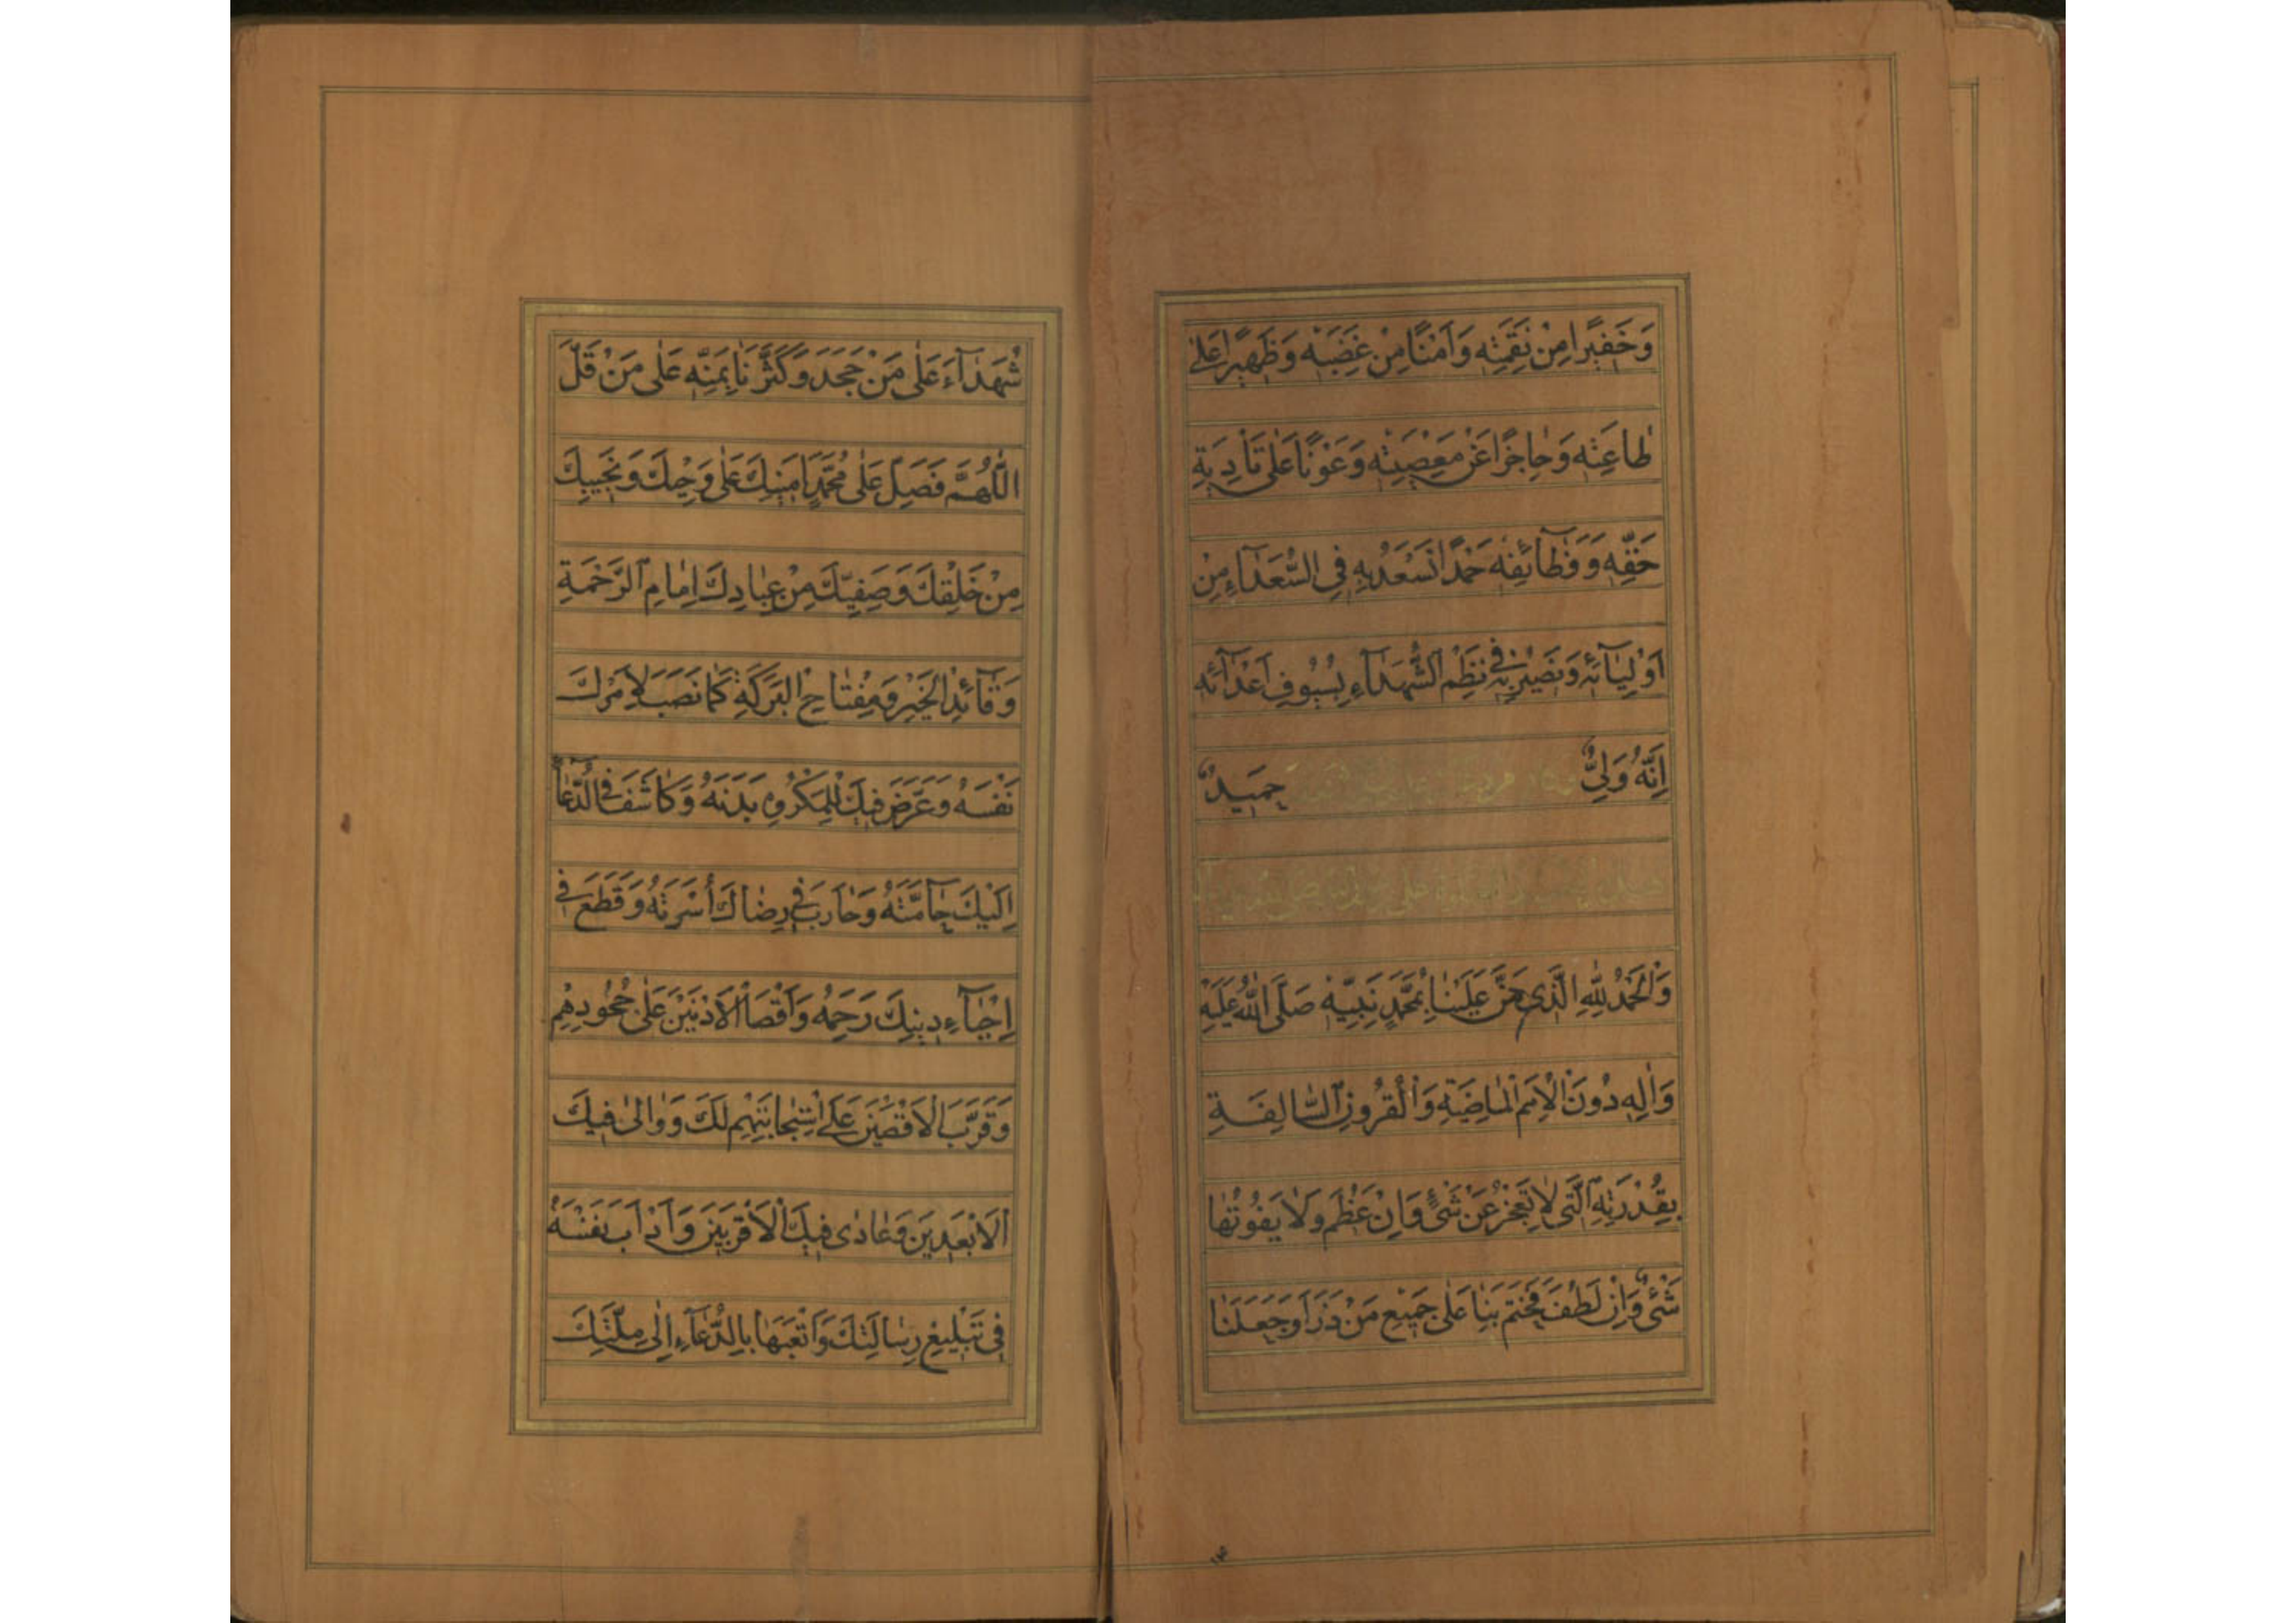 وَخَفِيرًا مِنْ نَقِمَتِهِ وَاَمْنًا مِنْ غَضَبِهِ وَظَهِيرًا عَلىٰ
طاعَتِهِ وَحاجِزًا عَنْ مَعْصِيَتِهِ وَعَوْنًا عَلىٰ تَأْدِيَةِ
حَقِّهِ وَوَظآئِفِهِ حَمْدًا نَسْعَدُ بِهِ فِى السُّعَدآءِ مِنْ
اَوْلِيآئِهِ وَنَصيرُ بِهِ فى نَظْمِ الشُّهَدآءِ بِسُيُوفِ اَعْدآئِهِ
اِنَّهُ وَلِىٌّ حَمِيدٌ
وَالْحَمْدُ لِلّٰهِ الَّذى مَنَّ عَلَيْنا بِمُحَمَّدٍ نَبِيِّهِ صَلَّى اللّٰهُ عَلَيْهِ
وَاٰلِهِ دُونَ الْاُمَمِ الْماضِيَةِ وَالْقُرُونِ السّالِفَةِ
بِقُدْرَتِهِ الَّتى لاتَعْجِزُ عَنْ شَىْءٍ وَاِنْ عَظُمَ وَلا يَفُوتُها
شَىْءٌ وَاِنْ لَطُفَ فَخَتَمَ بِنا عَلىٰ جَميعِ مَنْ ذَرَاَ وَجَعَلَنا
شُهَدآءَ عَلىٰ مَنْ جَحَدَ وَكَثَّرَنا بِمَنِّهِ عَلىٰ مَنْ قَلَّ
اَللّٰهُمَّ فَصَلِّ عَلىٰ مُحَمَّدٍ اَمينِكَ عَلىٰ وَحْيِكَ وَنَجِيبِكَ
مِنْ خَلْقِكَ وَصَفِيِّكَ مِنْ عِبادِكَ اِمامِ الرَّحْمَةِ
وَقآئِدِ الْخَيْرِ وَمِفْتاحِ الْبَرَكَةِ كَما نَصَبَ لِاَمْرِكَ
نَفْسَهُ وَعَرَّضَ فيكَ لِلْمَكْرُوهِ بَدَنَهُ وَكاشَفَ فِى الدُّعآءِ
اِلَيْكَ حآمَّتَهُ وَحارَبَ فى رِضاكَ أُسْرَتَهُ وَقَطَعَ فى
اِحْيآءِ دينِكَ رَحِمَهُ وَاَقْصَى الْاَدْنَيْنَ عَلىٰ جُحُودِهِمْ
وَقَرَّبَ الْاَقْصَيْنَ عَلَى اسْتِجابَتِهِمْ لَكَ وَوالىٰ فيكَ
الْاَبْعَدينَ وَعادىٰ فيكَ الْاَقْرَبينَ وَاَدْاَبَ نَفْسَهُ
فى تَبْليغِ رِسالَتِكَ وَاَتْعَبَها بِالدُّعآءِ اِلىٰ مِلَّتِكَ